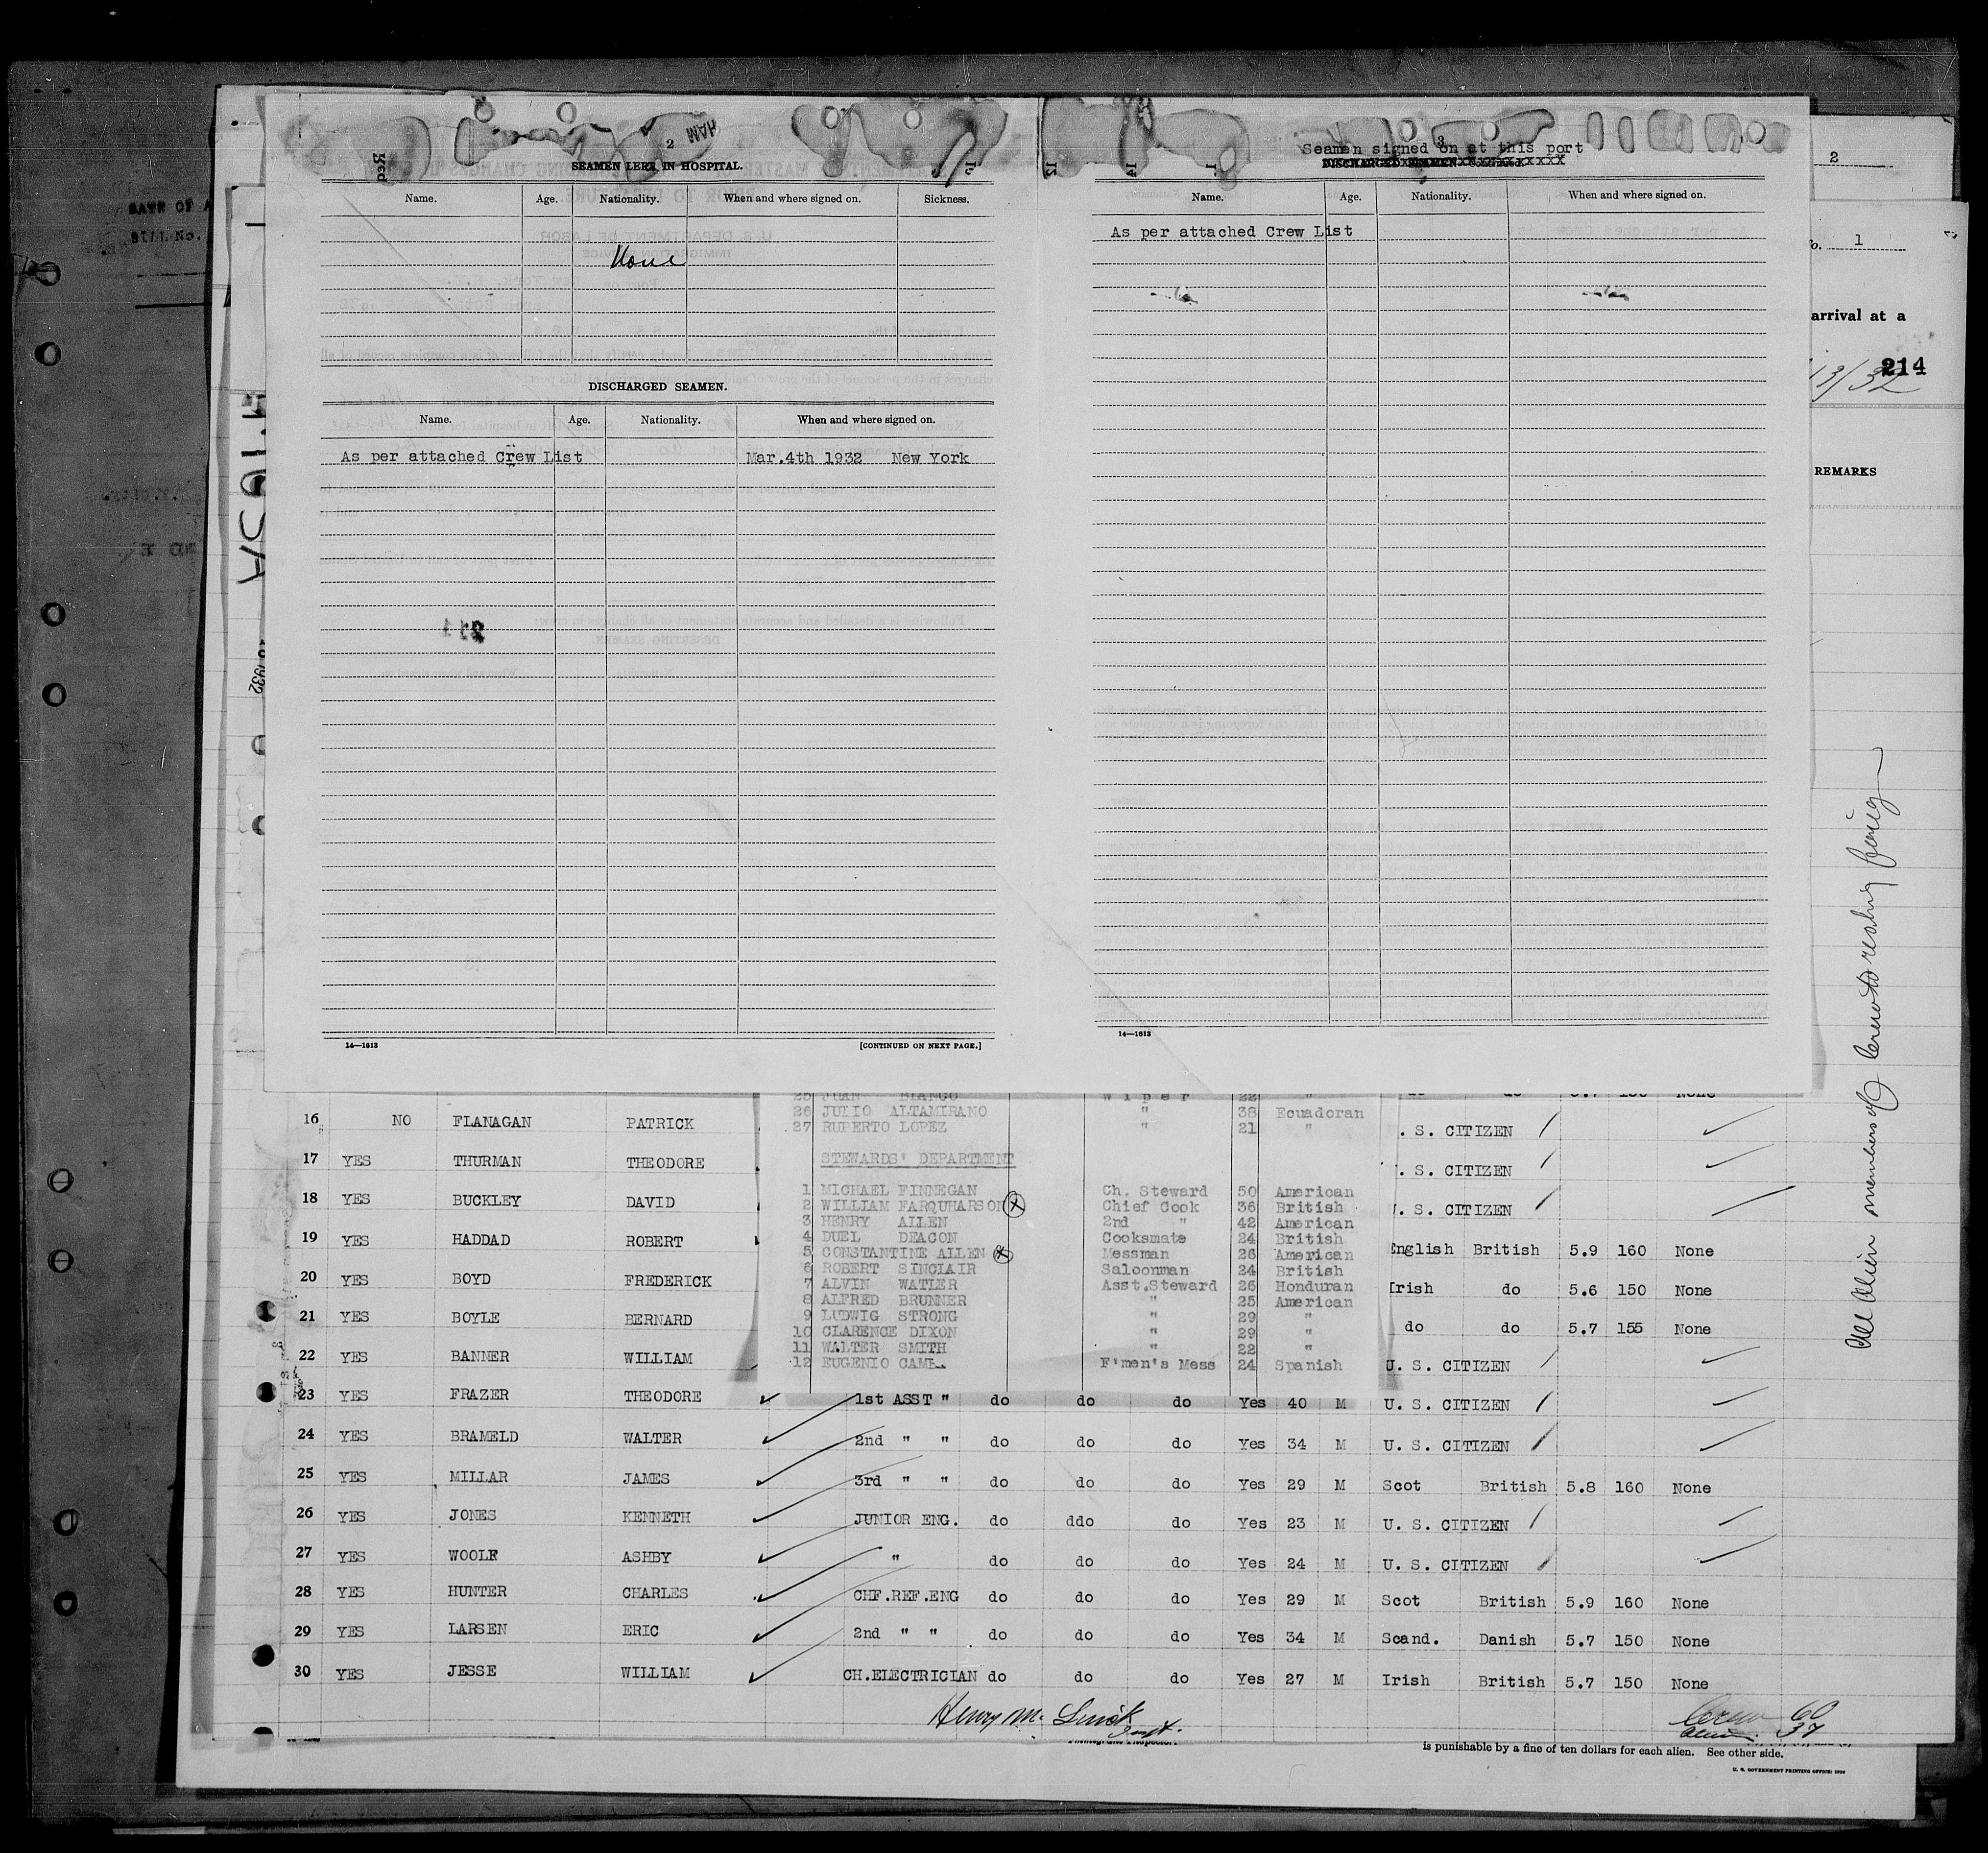 2
SEAMEN LEFT IN HOSPITAL.
Name. Age. Nationality. When and where signed on. Sickness.
None
DISCHARGED SEAMEN.
Name. Age. Nationality. When and where signed on.
As per attached Crew List Mar.4th 1932 New York
14—1613 [CONTINUED ON NEXT PAGE.]
3
Seamen signed on at this port
Name. Age. Nationality. When and where signed on.
As per attached Crew List
14—1613
2
1
arrival at a
214
13/32
REMARKS
All Alien members of Crew to reship foreign
26 JULIO ALTAMIRANO " 38 Ecuadoran
27 RUPERTO LOPEZ " 21 "
STEWARDS' DEPARTMENT
1 MICHAEL FINNEGAN Ch. Steward 50 American
2 WILLIAM FARQUHARSON Chief Cook 36 British
3 HENRY ALLEN 2nd " 42 American
4 DUEL DEACON Cooksmate 24 British
5 CONSTANTINE ALLEN Messman 26 American
6 ROBERT SINCLAIR Saloonman 24 British
7 ALVIN WATLER Asst.Steward 26 Honduran
8 ALFRED BRUNNER " 25 American
9 LUDWIG STRONG " 29 "
10 CLARENCE DIXON " 29 "
11 WALTER SMITH " 22 "
12 EUGENIO F'men's Mess 24 Spanish
16 NO FLANAGAN PATRICK . S. CITIZEN
17 YES THURMAN THEODORE . S. CITIZEN
18 YES BUCKLEY DAVID . S. CITIZEN
19 YES HADDAD ROBERT English British 5.9 160 None
20 YES BOYD FREDERICK Irish do 5.6 150 None
21 YES BOYLE BERNARD do do 5.7 155 None
22 YES BANNER WILLIAM U. S. CITIZEN
23 YES FRAZER THEODORE 1st ASST " do do do Yes 40 M U. S. CITIZEN
24 YES BRAMELD WALTER 2nd " " do do do Yes 34 M U. S. CITIZEN
25 YES MILLAR JAMES 3rd " " do do do Yes 29 M Scot British 5.8 160 None
26 YES JONES KENNETH JUNIOR ENG. do ddo do Yes 23 M U. S. CITIZEN
27 YES WOOLF ASHBY " do do do Yes 24 M U. S. CITIZEN
28 YES HUNTER CHARLES CHF.REF.ENG do do do Yes 29 M Scot British 5.9 160 None
29 YES LARSEN ERIC 2nd " " do do do Yes 34 M Scand. Danish 5.7 150 None
30 YES JESSE WILLIAM CH.ELECTRICIAN do do do Yes 27 M Irish British 5.7 150 None
Henry M.
Crew 60
Alien 37
is punishable by a fine of ten dollars for each alien. See other side.
U. S. GOVERNMENT PRINTING OFFICE: